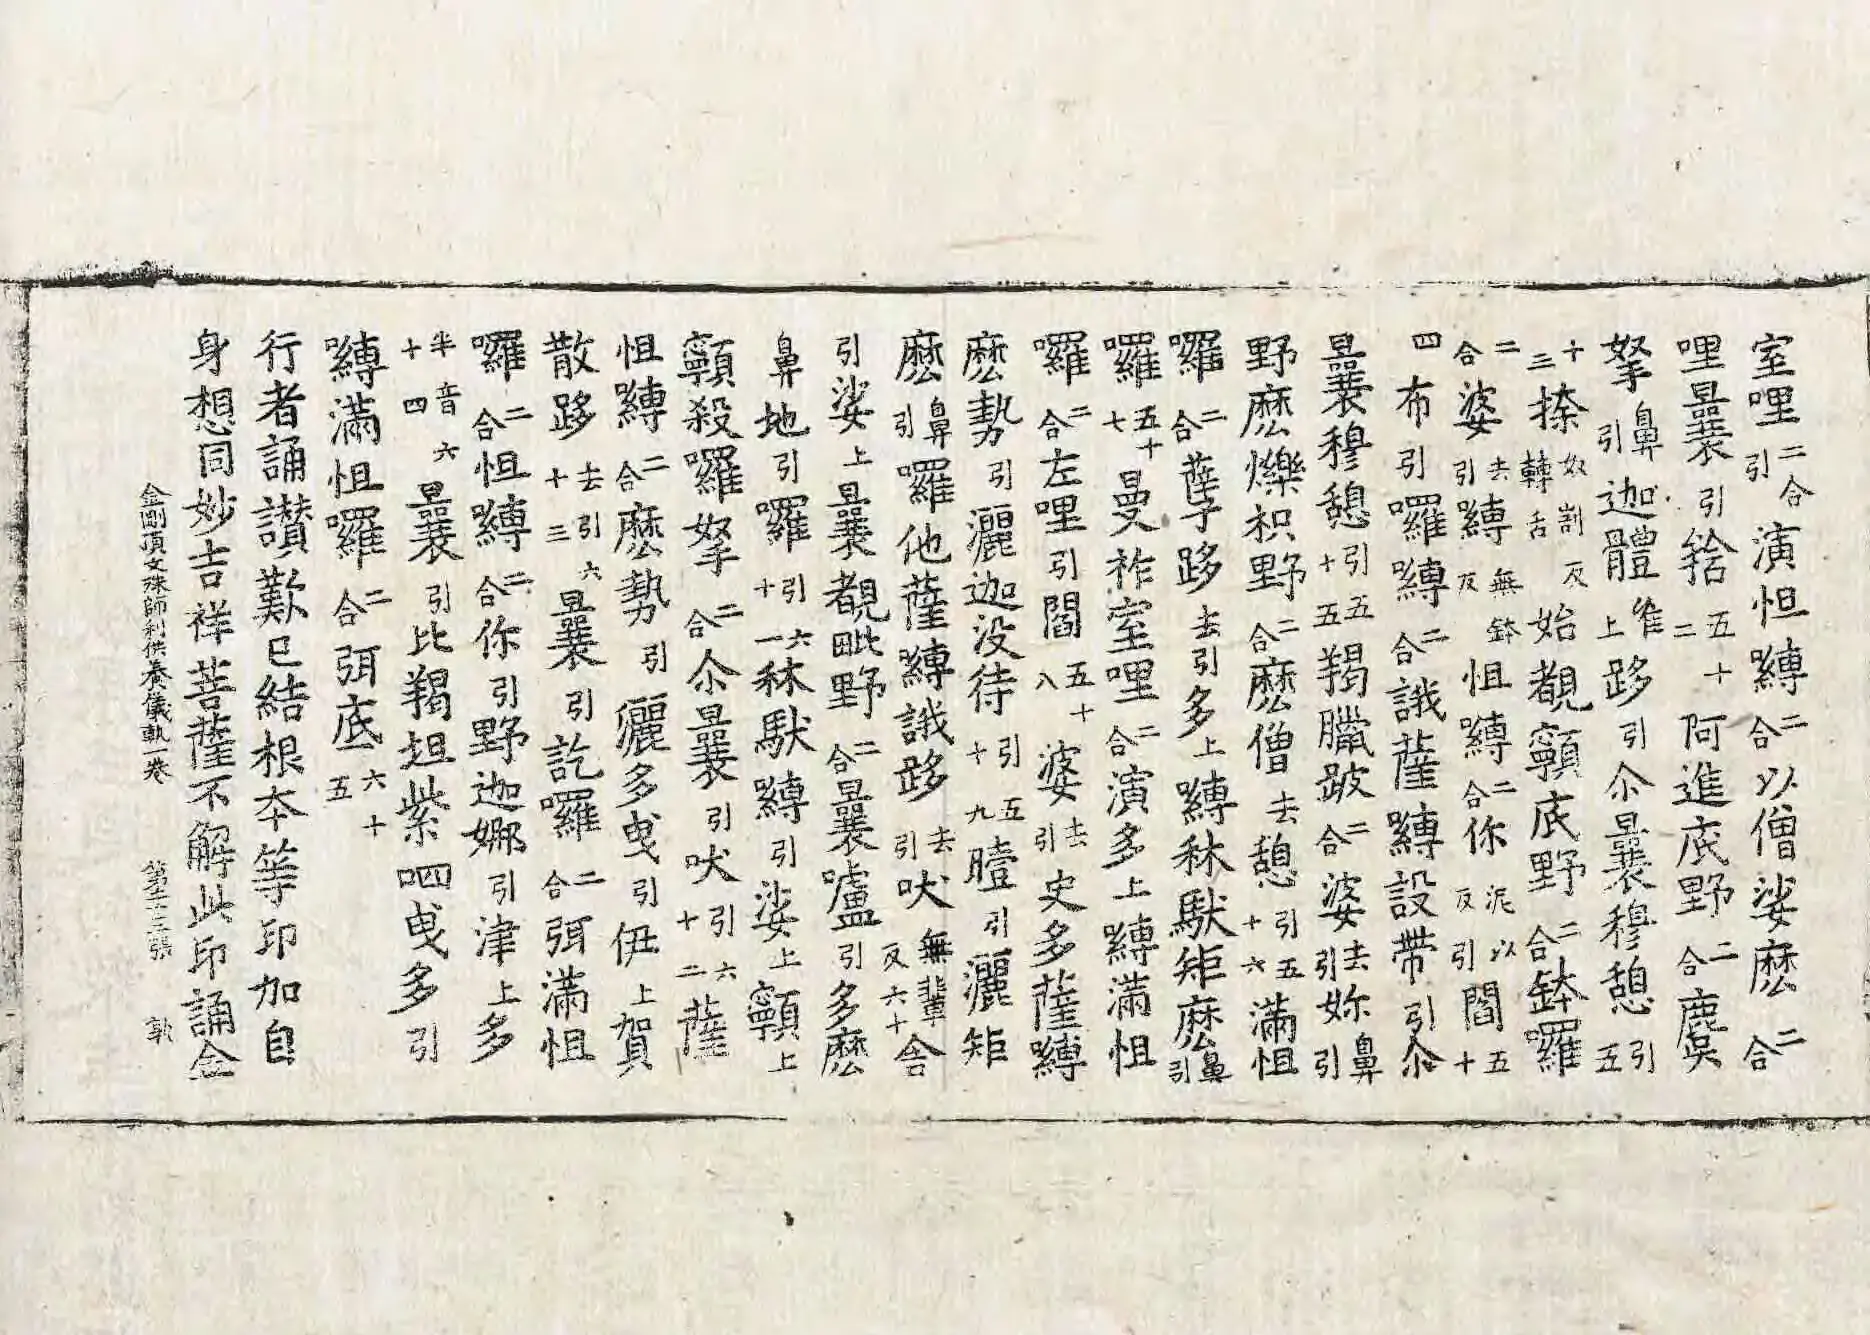 室哩二合引演怛嚩二合以僧娑麽二合
哩曩引捨五十二阿進底野二合麌
拏鼻引迦體准上跢引尒曩穆憩引五
十三捺奴割反轉舌始覩寧頁底野二合鉢羅
二合婆去引嚩無鉢反怛嚩二合你泥以反引閻五十
四布引囉嚩二合誐薩嚩設帶引尒
曩穆憩引五十五羯臘跛二合婆去引妳鼻引
野麽爍枳野二合麽僧去憩引五十六滿怛
囉二合孽跢去引多上嚩秣馱矩麽鼻引
囉五十七曼祚室哩二合演多上嚩滿怛
囉二合左哩引閻五十八婆去引史多薩嚩
麽勢引灑迦没待引五十九曀引灑矩
麽鼻引囉他薩嚩誐跢去引吠無輩反六十舍
引娑上曩覩毗野二合曩嚧引多麽
鼻地引囉引六十一秣馱嚩引娑上寧頁上
寧頁殺囉拏二合尒曩引吠引六十二薩
怛嚩二合麽勢引灑多曵引伊上賀
散跢去引六十三曩引訖囉二合弭滿怛
囉二合怛嚩二合你引野迦娜引津上多
半音六十四曩引比羯怛紫呬曵多引
嚩滿怛囉二合弭底六十五
行者誦讃歎已結根本等印加自
身想同妙吉祥菩薩不解此印誦全
金剛頂文殊師利供養儀軌一卷 第十三張 㪟